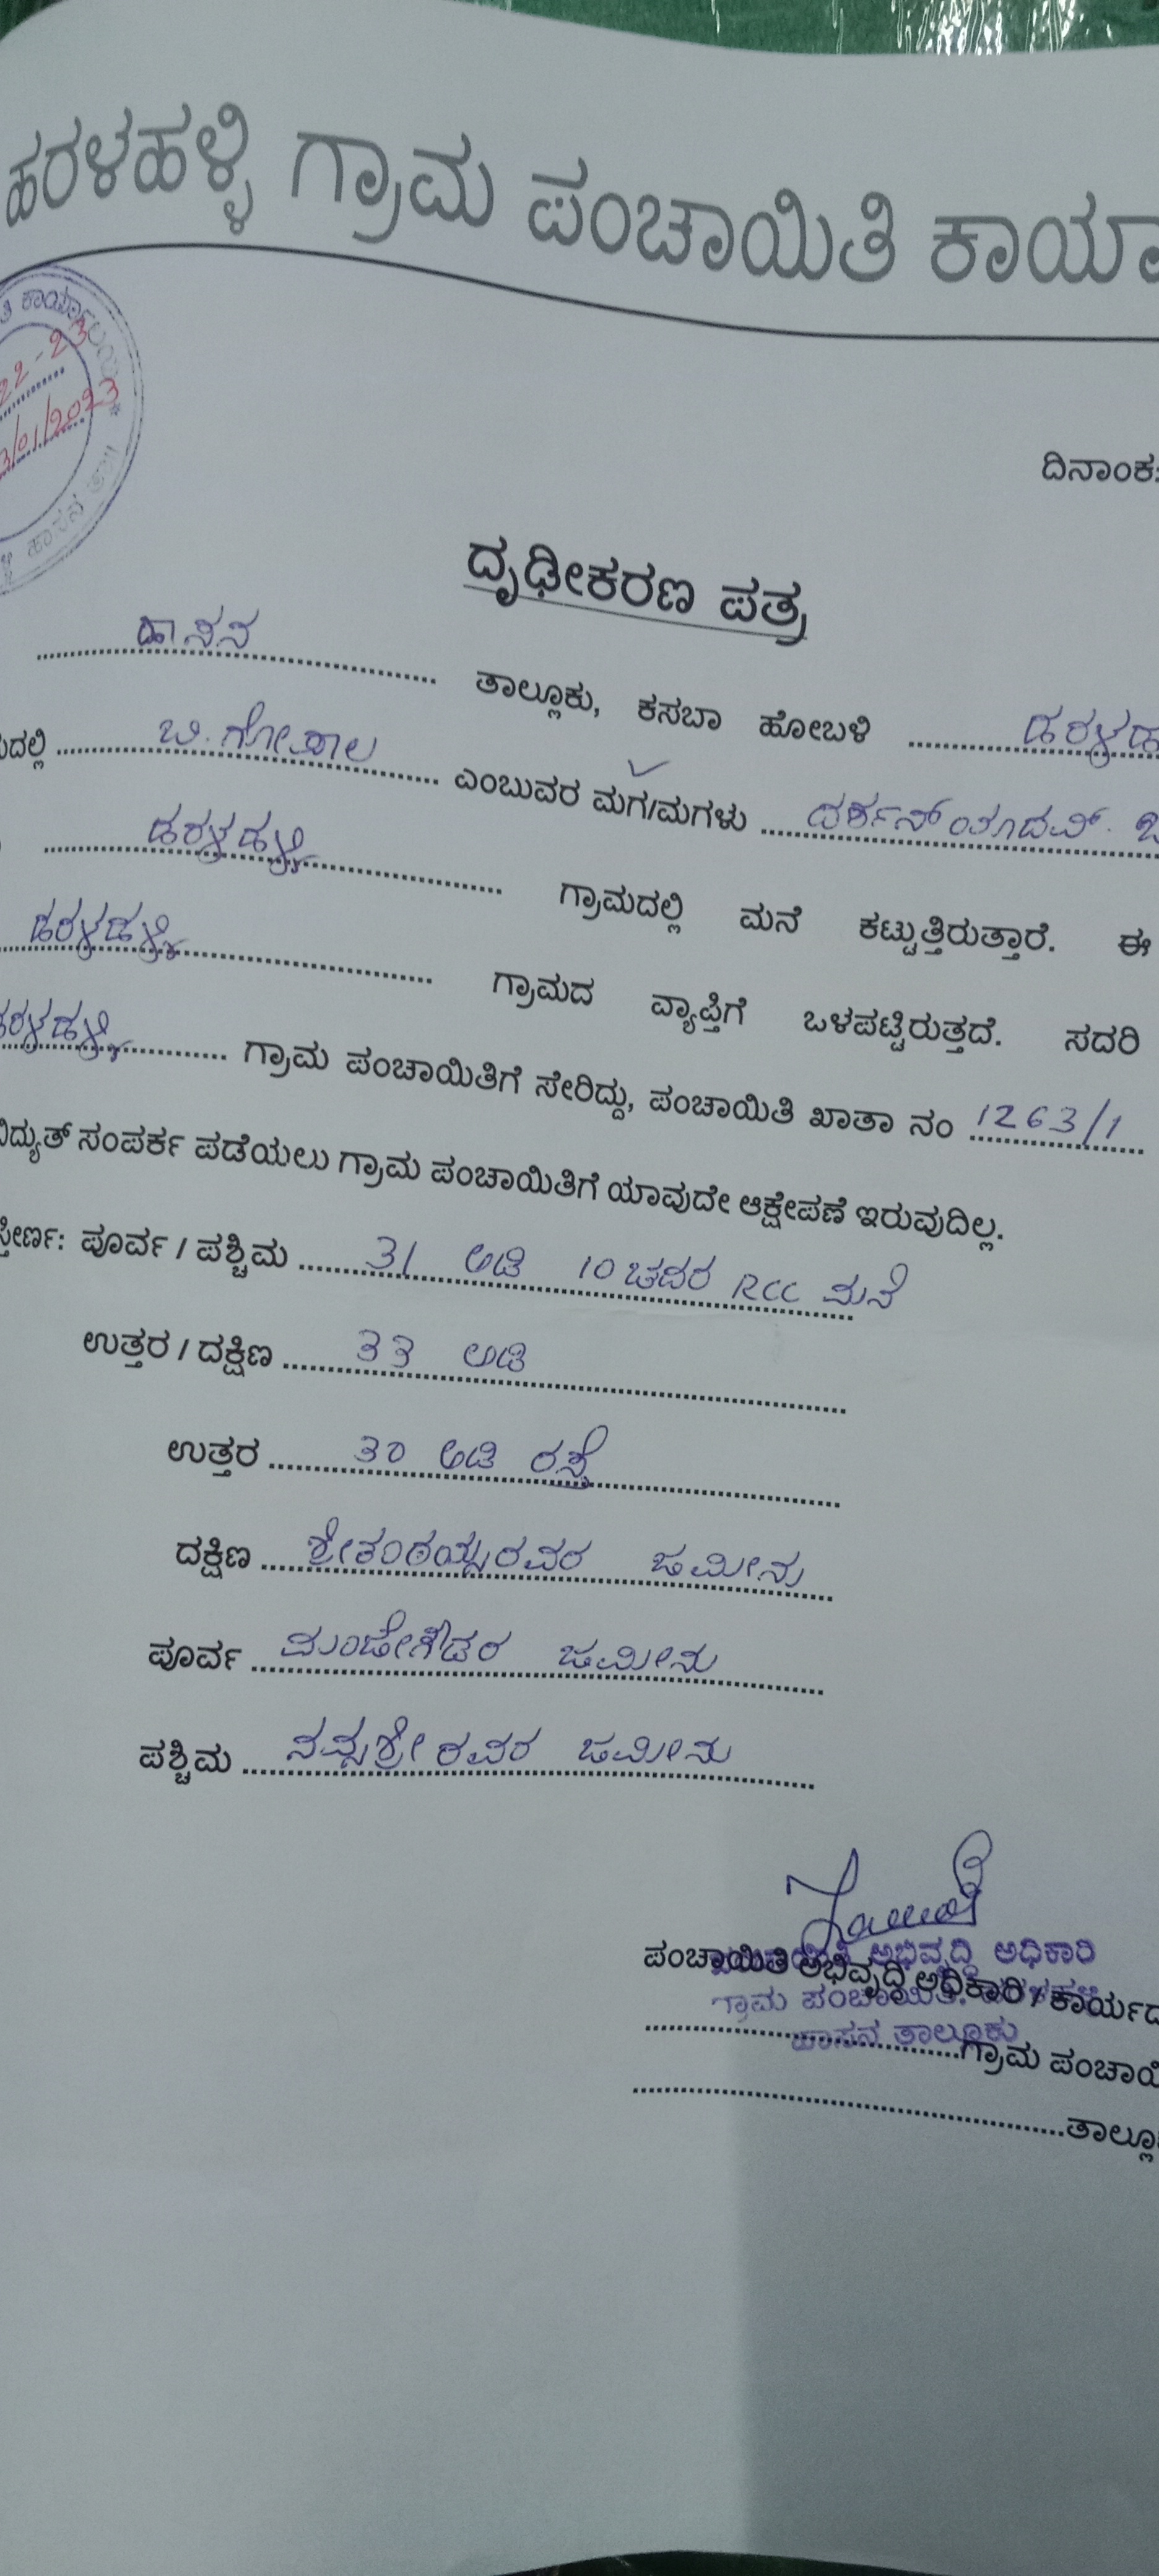 ಹರಳಹಳ್ಳಿ ಗ್ರಾಮ ಪಂಚಾಯಿತಿ
ಕಾರ್ಯಾಲಯ
22-23
/01/2023
ಹಾಸನ ತಾ||
ದಿನಾಂಕ:
ದೃಢೀಕರಣ ಪತ್ರ
ಹಾಸನ ತಾಲ್ಲೂಕು, ಕಸಬಾ ಹೋಬಳಿ
ಬಿ.ಗೋಪಾಲ ಎಂಬುವರ ಮಗ/ಮಗಳು ದರ್ಶನ್ ಯಾದವ್.
ಹರಳಹಳ್ಳಿ ಗ್ರಾಮದಲ್ಲಿ ಮನೆ ಕಟ್ಟುತ್ತಿರುತ್ತಾರೆ. ಈ
ಹರಳಹಳ್ಳಿ ಗ್ರಾಮದ ವ್ಯಾಪ್ತಿಗೆ ಒಳಪಟ್ಟಿರುತ್ತದೆ. ಸದರಿ
ಹರಳಹಳ್ಳಿ ಗ್ರಾಮ ಪಂಚಾಯಿತಿಗೆ ಸೇರಿದ್ದು, ಪಂಚಾಯಿತಿ ಖಾತಾ ನಂ 1263/1
ವಿದ್ಯುತ್ ಸಂಪರ್ಕ ಪಡೆಯಲು ಗ್ರಾಮ ಪಂಚಾಯಿತಿಗೆ ಯಾವುದೇ ಆಕ್ಷೇಪಣೆ ಇರುವುದಿಲ್ಲ.
ಸ್ತೀರ್ಣ: ಪೂರ್ವ / ಪಶ್ಚಿಮ 31 ಅಡಿ 10 ಚದರ RCC ಮನೆ
ಉತ್ತರ / ದಕ್ಷಿಣ 33 ಅಡಿ
ಉತ್ತರ 30 ಅಡಿ ರಸ್ತೆ
ದಕ್ಷಿಣ ಜಮೀನು
ಪೂರ್ವ ಜಮೀನು
ಪಶ್ಚಿಮ ಜಮೀನು
ಅಭಿವೃದ್ಧಿ ಅಧಿಕಾರಿ
ಪಂಚಾಯಿತಿ ಅಭಿವೃದ್ಧಿ ಅಧಿಕಾರಿ /
ಗ್ರಾಮ ಪಂಚಾಯಿತಿ.
ಹಾಸನ ತಾಲ್ಲೂಕು
ಗ್ರಾಮ